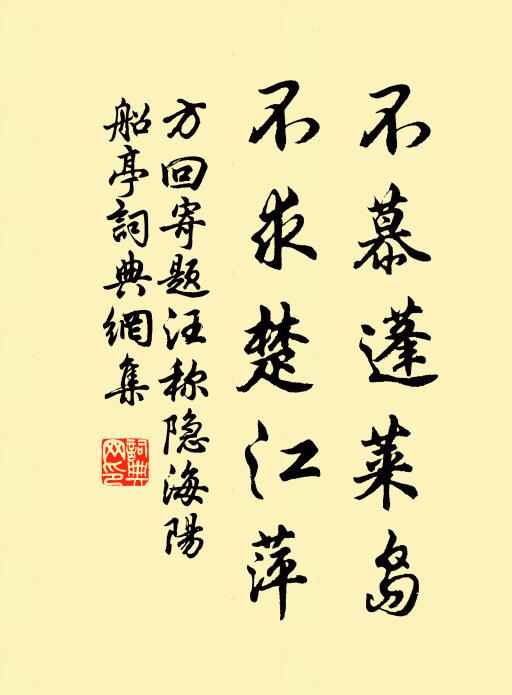 不慕蓬莱岛
不求楚江萍
方回寄题汪称隐海陽
船亭詞典網集
詞典
网印